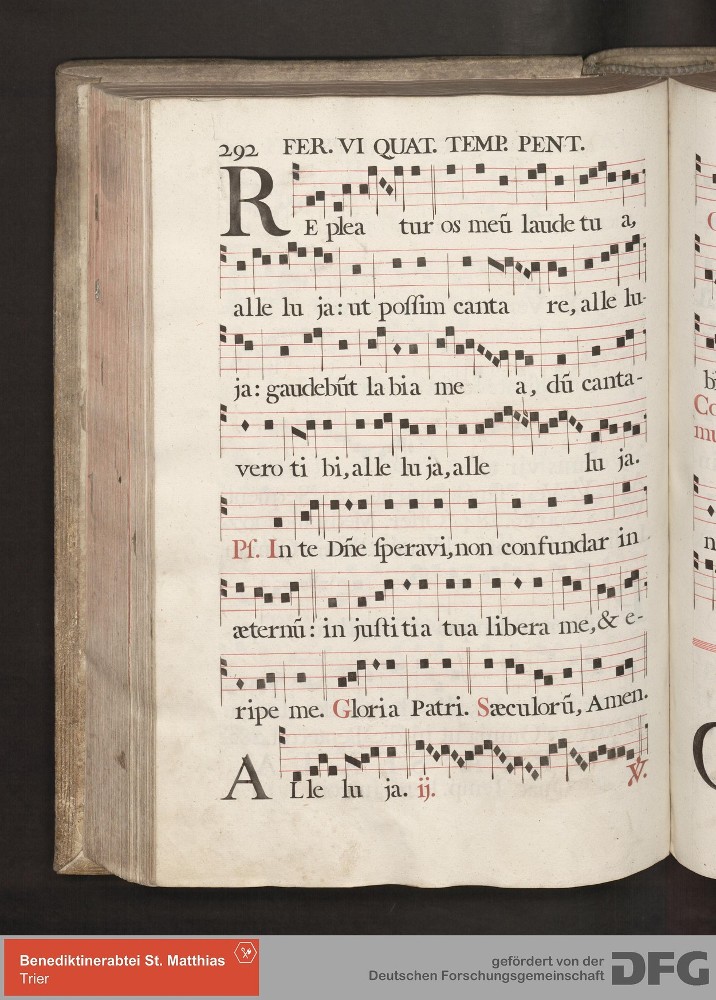 292 FER. VI QUAT. TEMP. PENT.
RE plea tur os meũ laude tu a,
alle lu ja: ut poſſim canta re, alle lu-
ja: gaudebũt labia me a, dũ canta-
vero ti bi, alle lu ja, alle lu ja.
Pſ. In te Dñe ſperavi, non confundar in
æternũ: in juſtitia tua libera me, & e-
ripe me. Gloria Patri. Sæculorũ, Amen.
ALle lu ja. ij. ℣.
Benediktinerabtei St. Matthias
Trier
gefördert von der
Deutschen Forschungsgemeinschaft
DFG